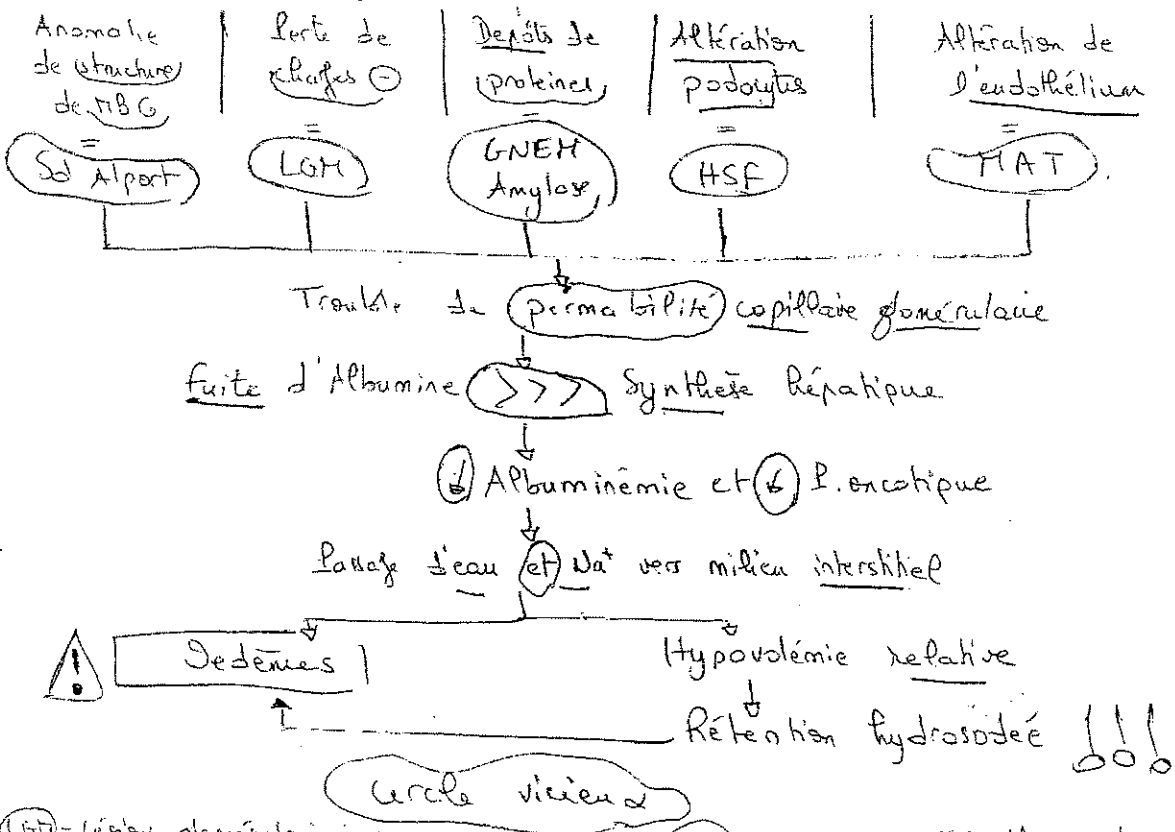 Anomalie de structure de MBG
=
Sd Alport
Perte de charges ⊖
=
LGM
Dépôts de protéines
=
GNEM
Amylose
Altération podocytes
=
HSF
Altération de l'endothélium
=
MAT
Trouble de permabilité capillaire glomérulaire
fuite d'Albumine >>> Synthèse hépatique
↓ Albuminémie et ↓ P. oncotique
Passage d'eau et Na⁺ vers milieu interstitiel
Oedèmes
Hypovolémie relative
Rétention hydrosodée !!!
Cercle vicieux
LGM - Lésion